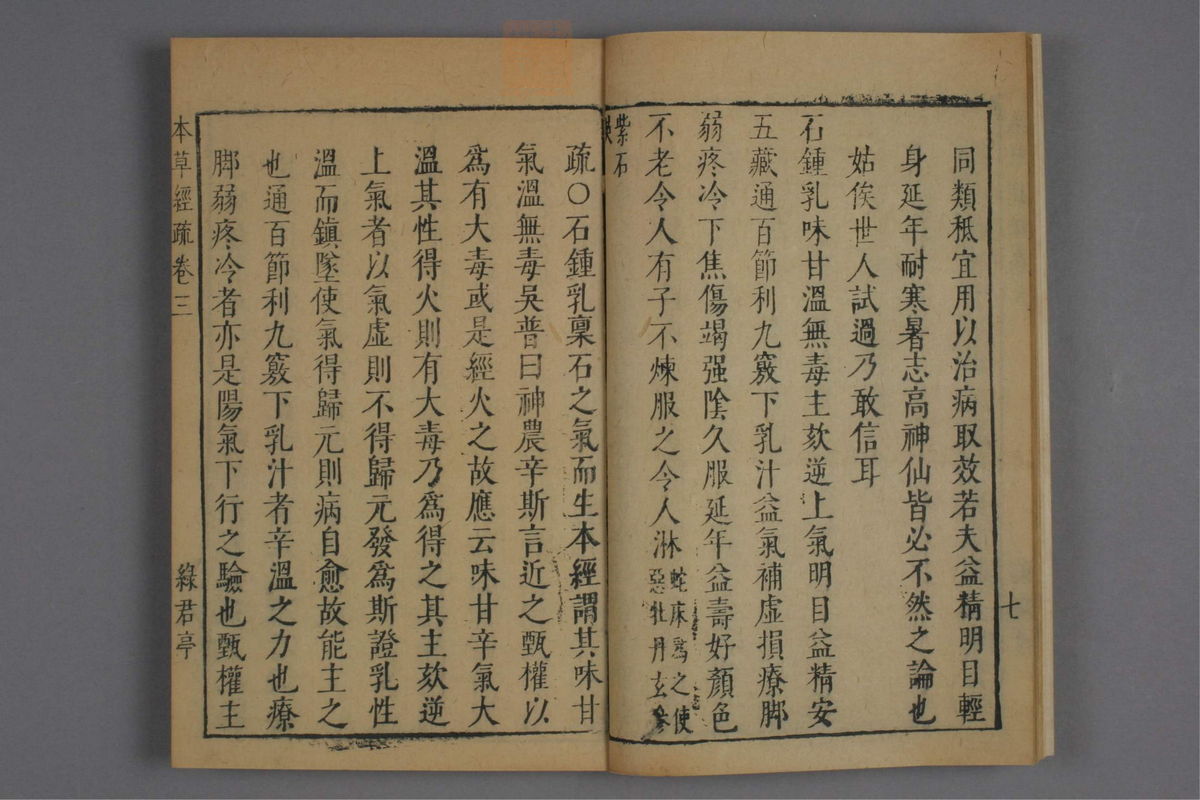 同類秪宜用以治病取效若夫益精明目輕
身延年耐寒暑志高神仙皆必不然之論也
姑俟世人試過乃敢信耳
石鍾乳味甘溫無毒主欬逆上氣明目益精安
五藏通百節利九竅下乳汁益氣補虛損療脚
弱疼冷下焦傷竭强陰久服延年益壽好顏色
不老令人有子不煉服之令人淋
蛇床爲之使
惡牡丹玄參
紫石
疏○石鍾乳稟石之氣而生本經謂其味甘
氣溫無毒吳普曰神農辛斯言近之甄權以
爲有大毒或是經火之故應云味甘辛氣大
溫其性得火則有大毒乃爲得之其主欬逆
上氣者以氣虛則不得歸元發爲斯證乳性
溫而鎮墜使氣得歸元則病自愈故能主之
也通百節利九竅下乳汁者辛溫之力也療
脚弱疼冷者亦是陽氣下行之驗也甄權主
本草經疏卷三
綠君亭
七